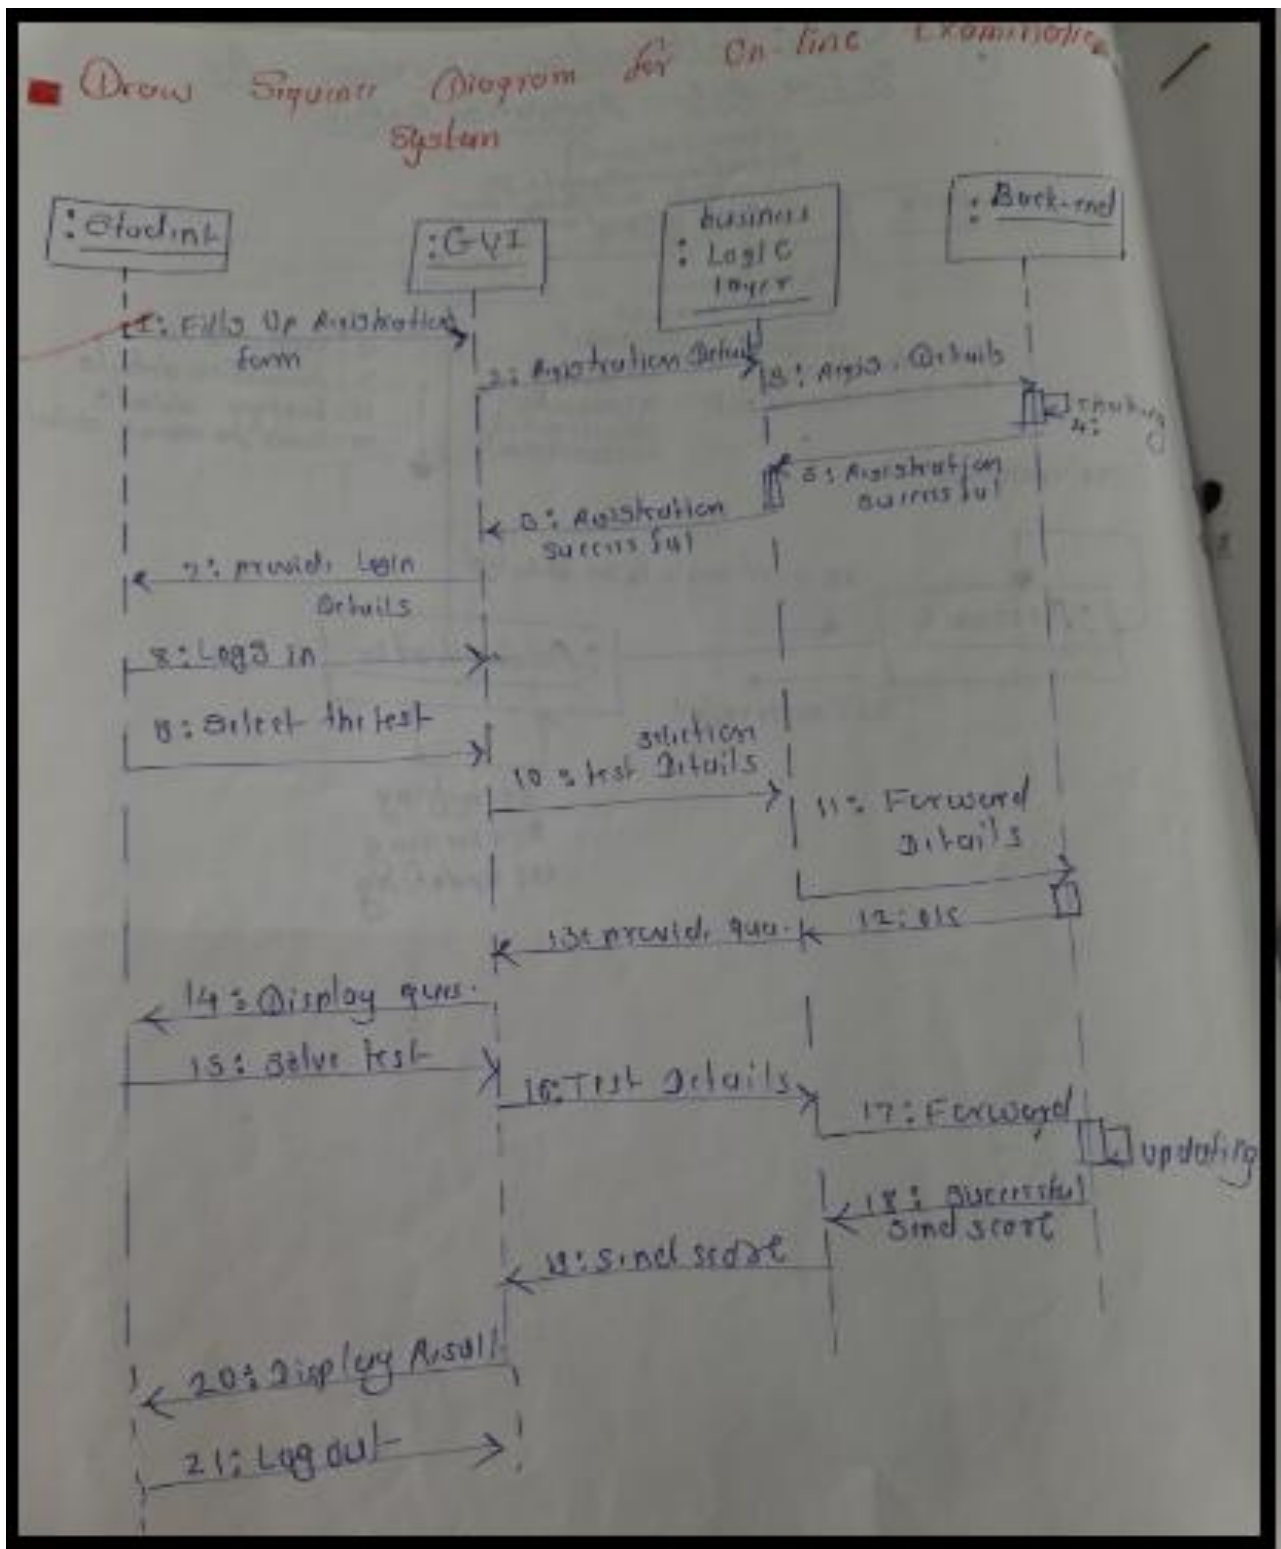 Draw Sequence Diagram for On-line Examination
System
: Student
: GUI
business
: Logic
layer
: Back-end
1: Fills Up Registration
form
2: Registration Details
3: Regis. Details
4:
5: Registration
successful
6: Registration
successful
7: provide Login
Details
8: Logs in
9: Select the test
selection
10: test Details
11: Forward
Details
12:
13: provide ques.
14: Display ques.
15: Solve test
16: Test Details
17: Forward
updating
18: Successful
Send score
19: Send score
20: Display Result
21: Log out